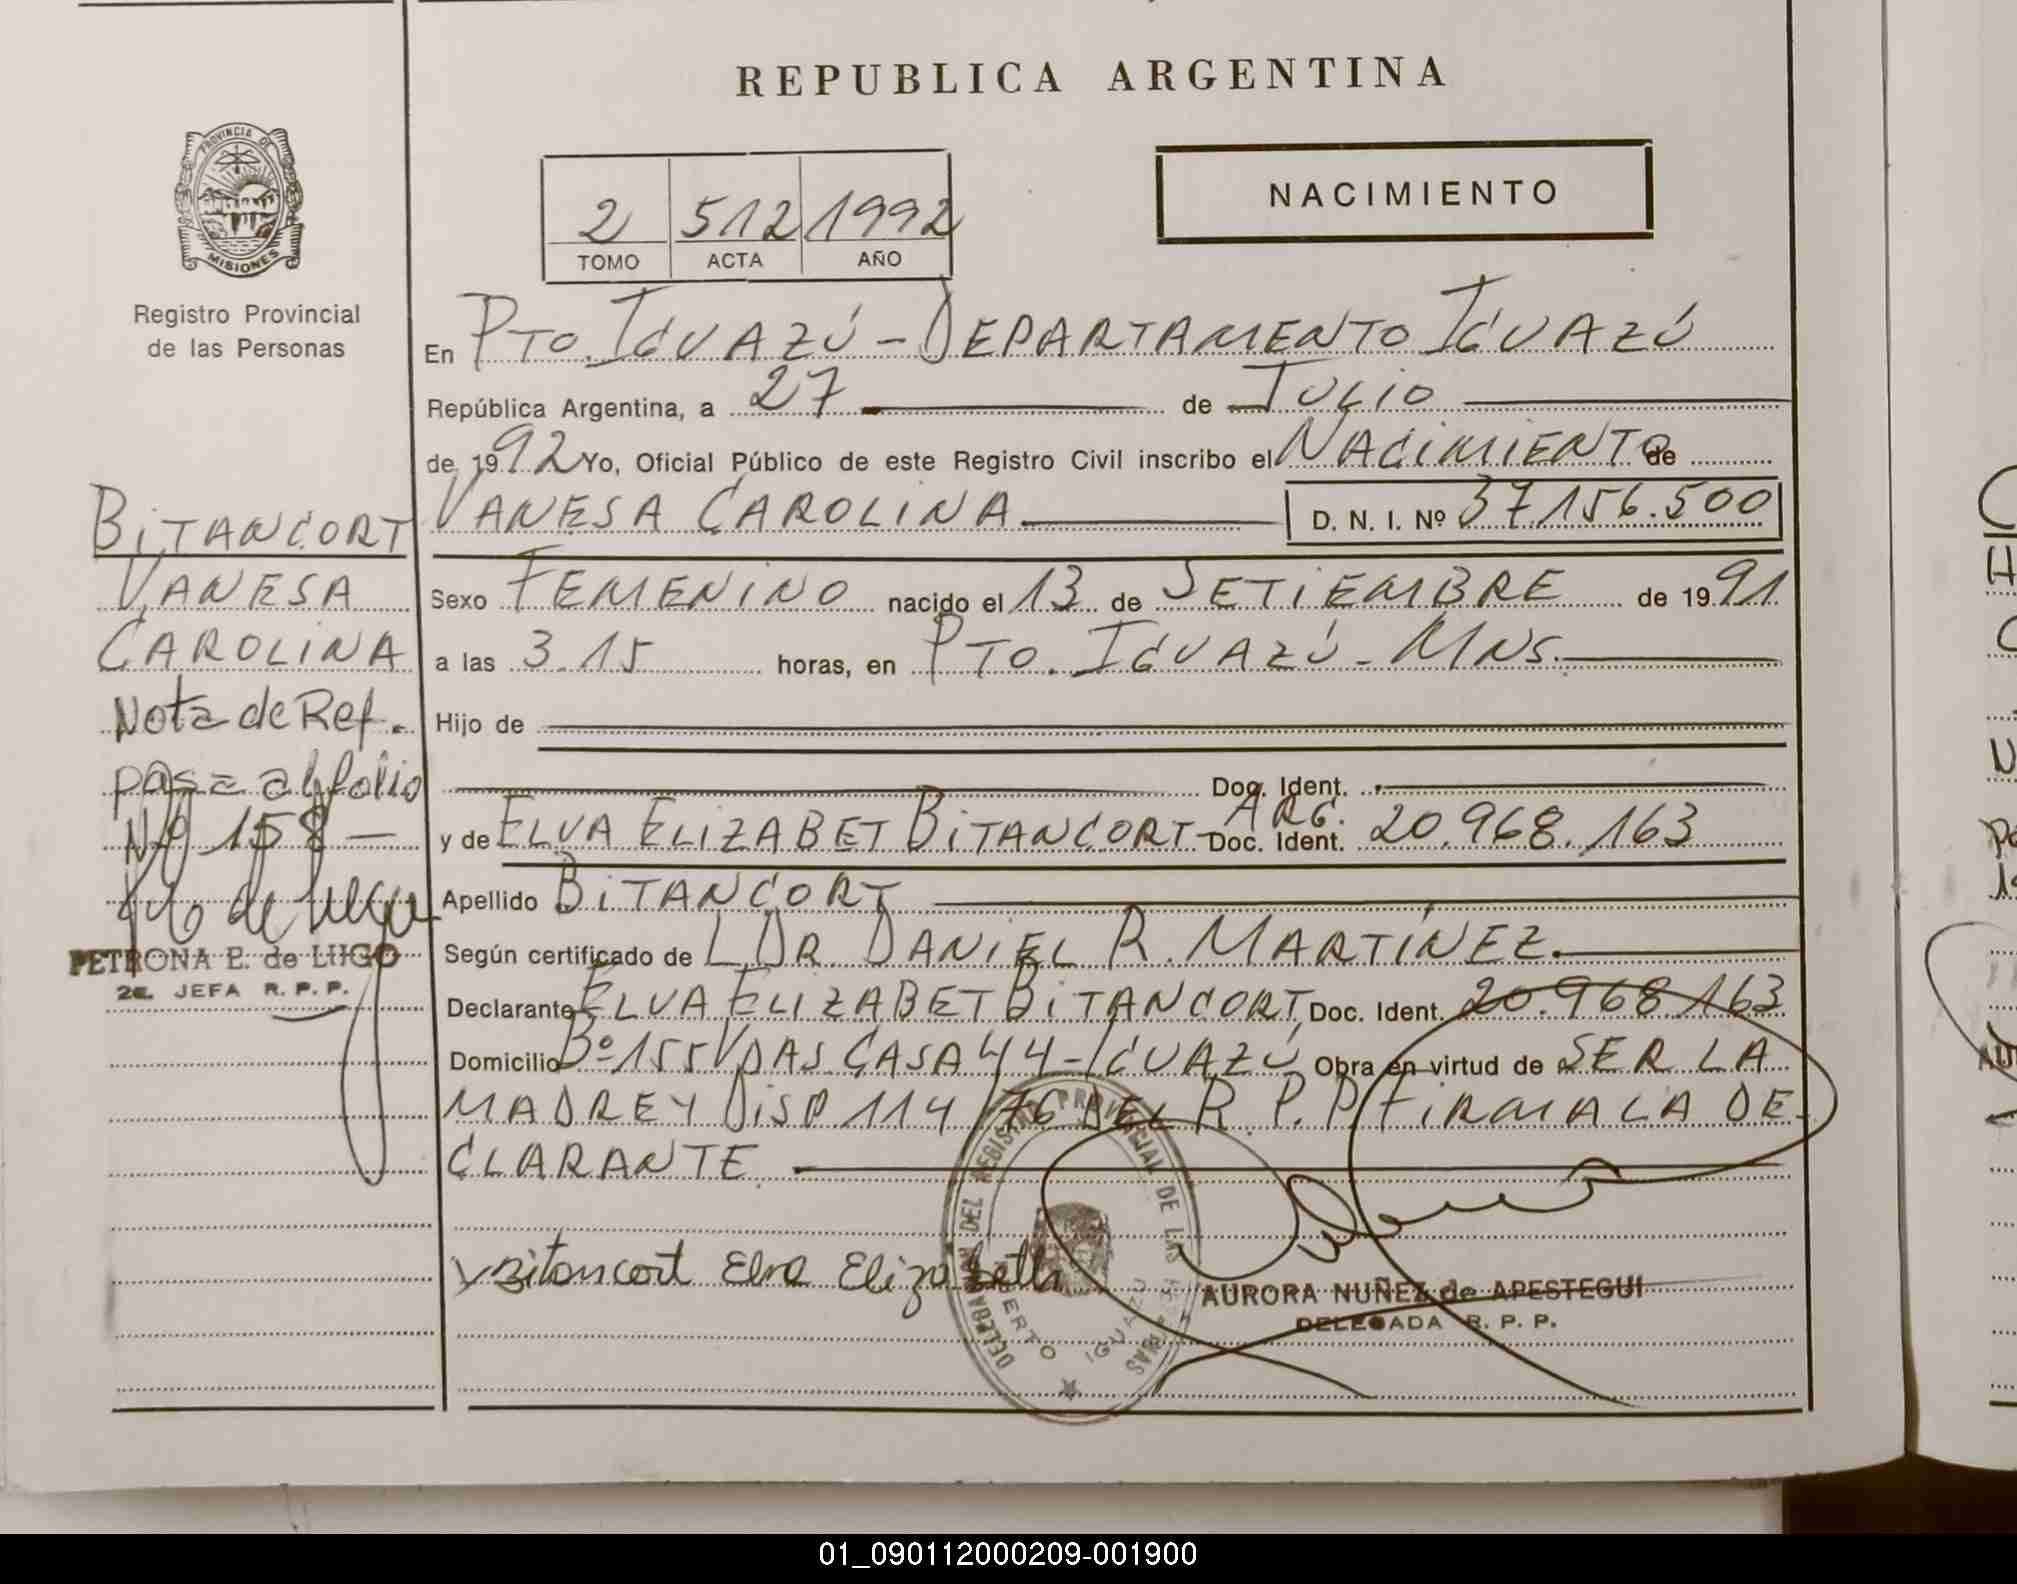 REPUBLICA ARGENTINA
PROVINCIA DE
MISIONES
Registro Provincial
de las Personas
2 512 1992
TOMO ACTA AÑO
NACIMIENTO
En PTO. IGUAZÚ - DEPARTAMENTO IGUAZÚ
República Argentina, a 27 de JULIO
de 1992 Yo, Oficial Público de este Registro Civil inscribo el NACIMIENTO de
VANESA CAROLINA D. N. I. Nº 37.156.500
Sexo FEMENINO nacido el 13 de SETIEMBRE de 1991
a las 3.15 horas, en PTO. IGUAZÚ - MNS.
Hijo de
Doc. Ident.
y de ELVA ELIZABET BITANCORT ARG. Doc. Ident. 20.968.163
Apellido BITANCORT
Según certificado de DR. DANIEL R. MARTÍNEZ
Declarante ELVA ELIZABET BITANCORT, Doc. Ident. 20.968.163
Domicilio Bº 155 VDAS CASA 44 - IGUAZÚ Obra en virtud de SER LA
MADRE Y DISP. 114/76 DEL R.P.P. FIRMA LA DE-
CLARANTE
Bitancort Elva Elizabeth
DELEGACION DEL REGISTRO PROVINCIAL DE LAS PERSONAS
PUERTO IGUAZU
AURORA NUÑEZ de APESTEGUI
DELEGADA R. P. P.
BITANCORT
VANESA
CAROLINA
Nota de Ref.
pasa al folio
Nº 158 —
PETRONA E. de LUGO
2a. JEFA R. P. P.
01_090112000209-001900